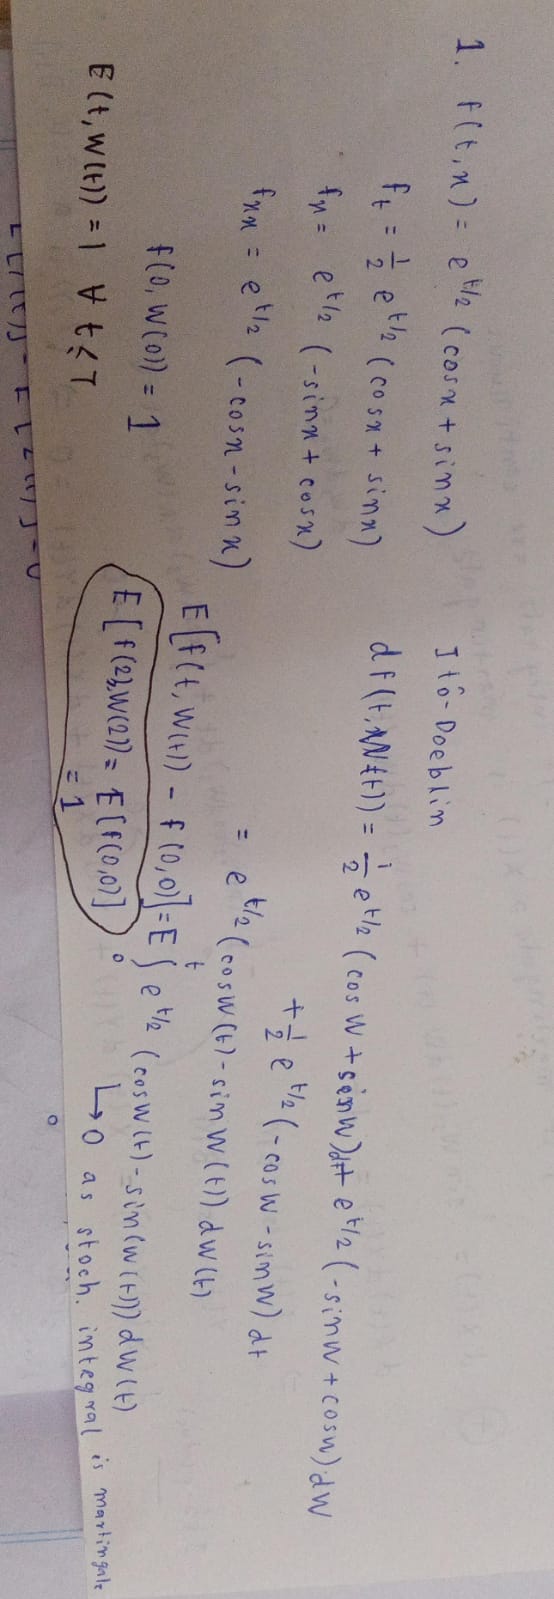 1. f(t,x) = e^{t/2} (cosx + sinx)
f_t = 1/2 e^{t/2} (cosx + sinx)
f_x = e^{t/2} (-sinx + cosx)
f_{xx} = e^{t/2} (-cosx - sinx)
f(0, W(0)) = 1
E(t, W(t)) = 1 ∀ t ≤ T
Itô-Doeblin
df(t, W(t)) = 1/2 e^{t/2} (cosW + sinW)dt + e^{t/2} (-sinW + cosW)dW
+ 1/2 e^{t/2} (-cosW - sinW) dt
= e^{t/2} (cosW(t) - sinW(t)) dW(t)
E[f(t, W(t)) - f(0,0)] = E ∫_0^t e^{t/2} (cosW(t) - sin(W(t))) dW(t)
↳ 0 as stoch. integral is martingale
E[f(2, W(2)) = E[f(0,0)]
= 1